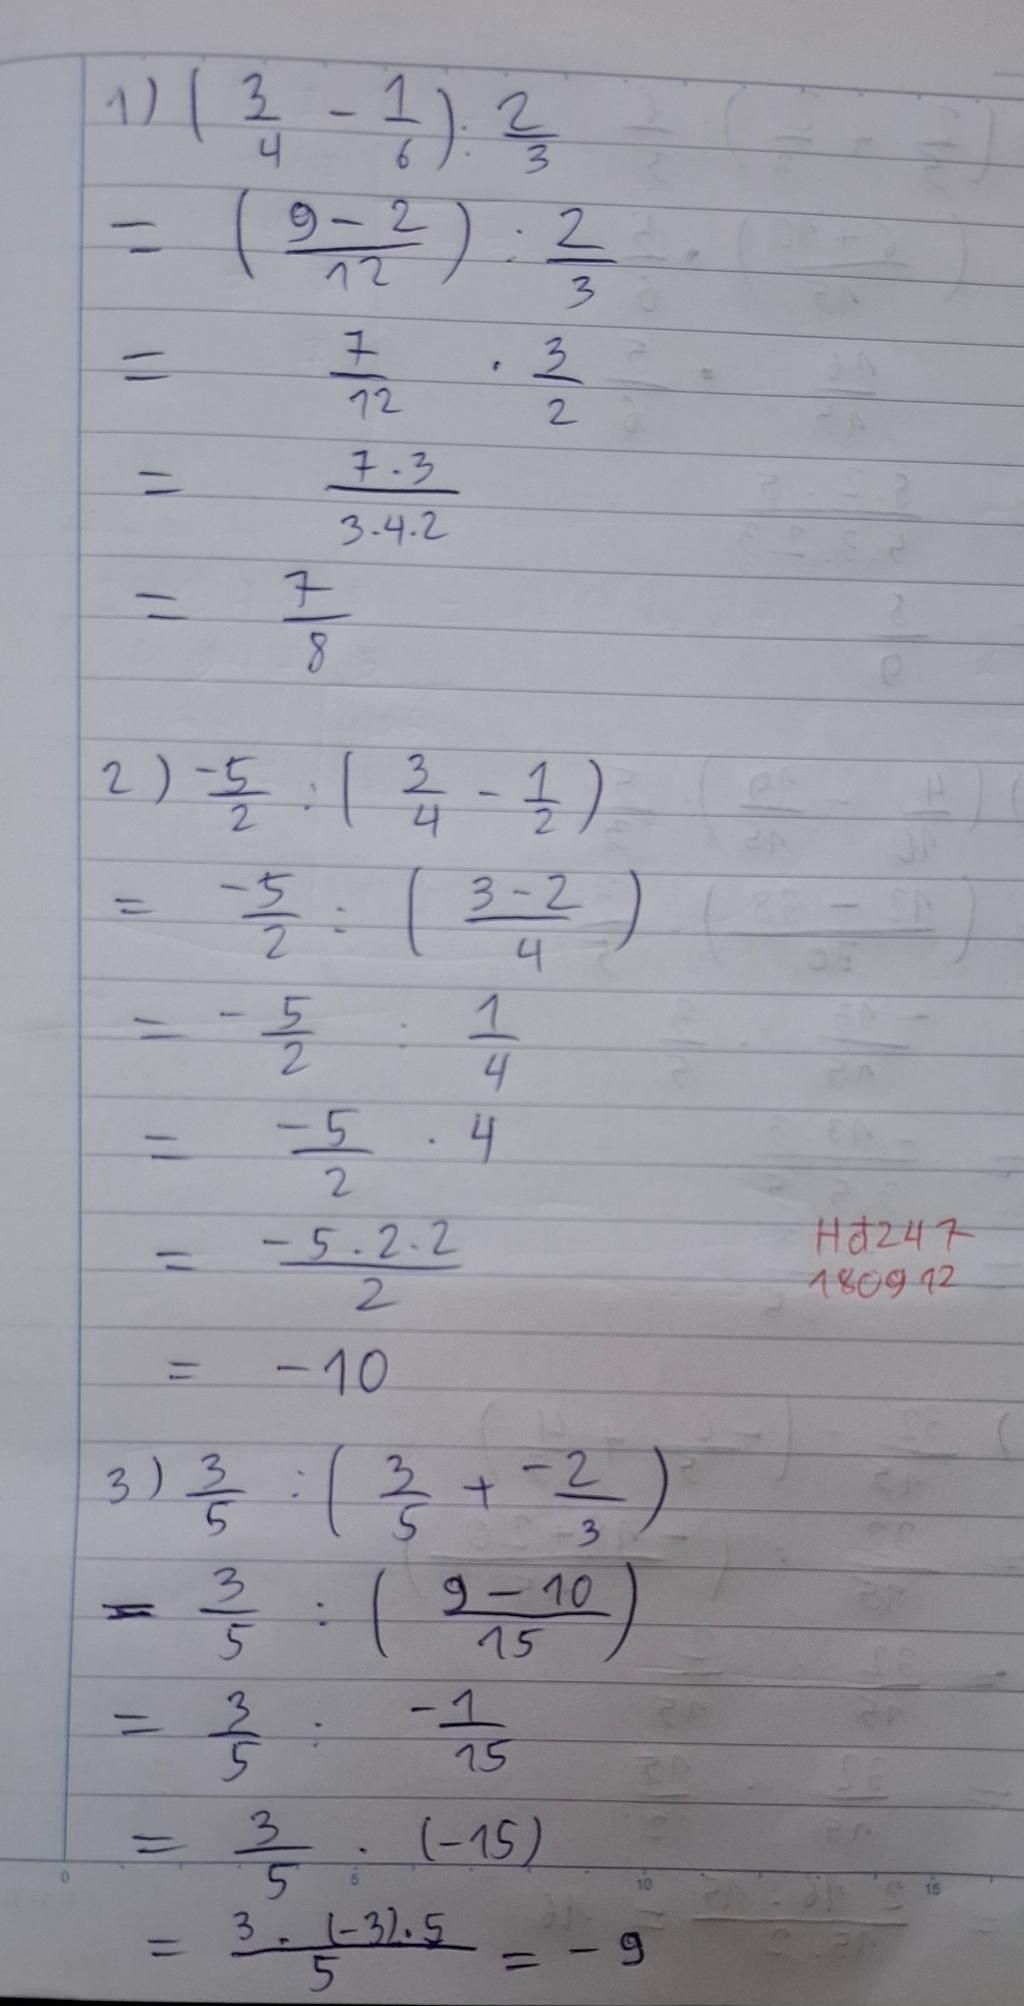 1) (3/4 - 1/6) : 2/3
= ((9 - 2)/12) : 2/3
= 7/12 . 3/2
= (7.3)/(3.4.2)
= 7/8
2) -5/2 : (3/4 - 1/2)
= -5/2 : ((3 - 2)/4)
= -5/2 : 1/4
= -5/2 . 4
= (-5.2.2)/2
Hđ247
180912
= -10
3) 3/5 : (3/5 + -2/3)
= 3/5 : ((9 - 10)/15)
= 3/5 : -1/15
= 3/5 . (-15)
0 5 10 15
= (3.(-3).5)/5 = -9